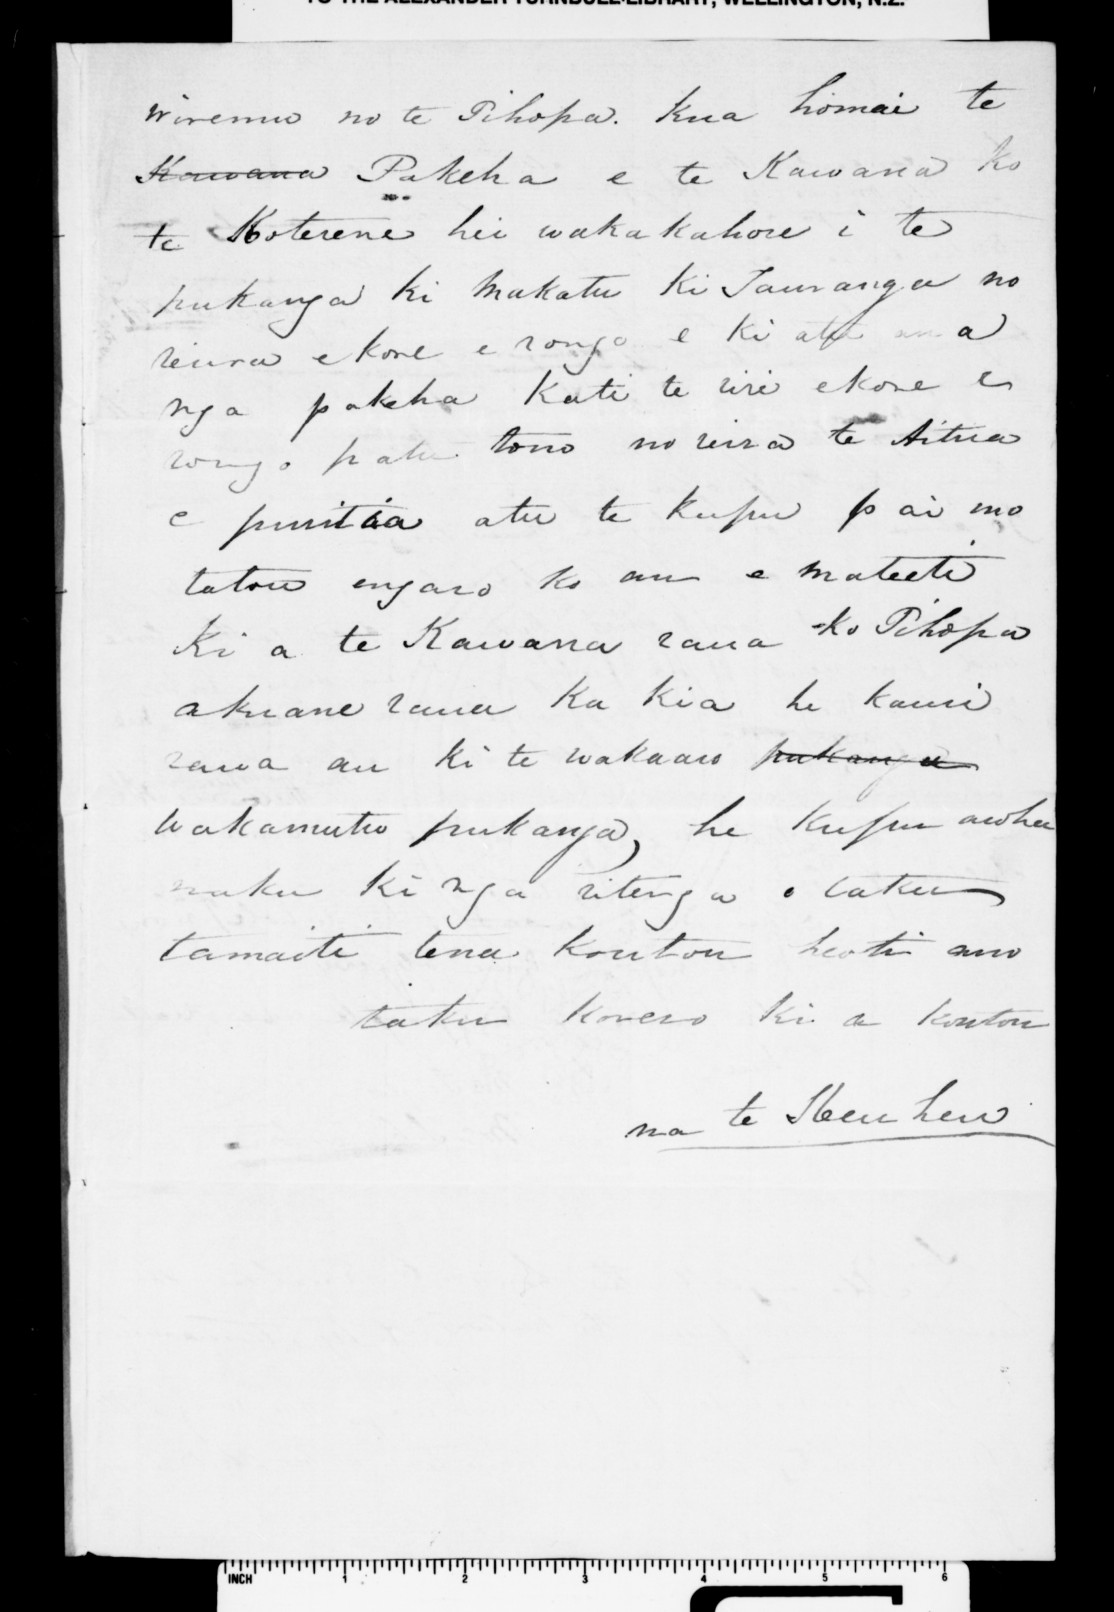 TO THE ALEXANDER TURNBULL LIBRARY, WELLINGTON, N.Z.
Wiremu no te Pihopa. kua homai te
Kawana Pakeha e te Kawana ko
te Koterene hei wakakahore i te
pukanga ki Makatu ki Tauranga no
reura ekore e rongo e ki atu ana
nga pakeha Kati te riri ekore e
rongo patu tono no reira te Aitua
e puritia atu te kupu pai mo
tatou engaro ko au e mateeti
Ki a te Kawana raua ko Pihopa
akuane raua ka kia he kauri
rawa au ki te wakaaro pukanga
wakamutu pukanga, he kupu aroha
naku ki nga ritenga o taku
tamaiti tena koutou heoti ano
taku korero ki a koutou
na te Heuheu
INCH 1 2 3 4 5 6